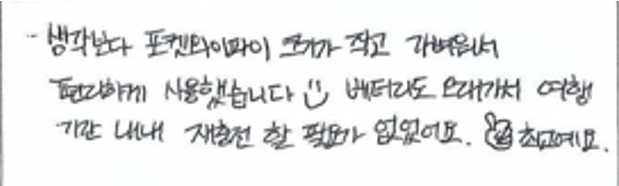 - 생각보다 포켓와이파이 크기가 작고 가벼워서
편리하게 사용했습니다 배터리도 오래가서 여행
기간 내내 재충전 할 필요가 없었어요. 최고예요.